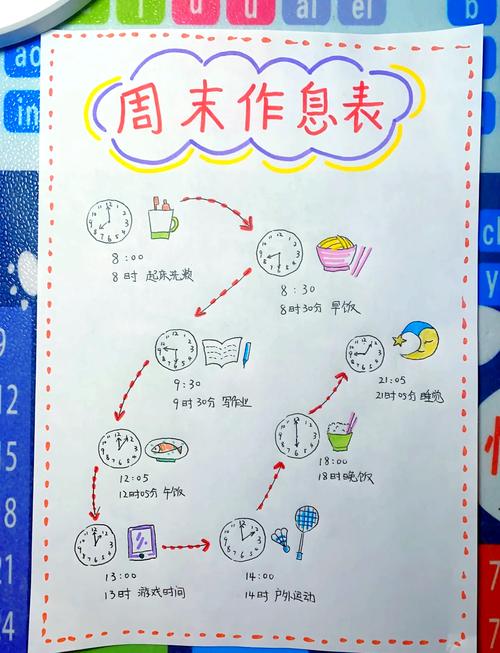 周末作息表
8:00
8时 起床洗漱
8:30
8时30分 早饭
9:30
9时30分 写作业
21:05
21时05分 睡觉
12:05
12时05分 午饭
18:00
18时晚饭
13:00
13时 游戏时间
14:00
14时 户外运动